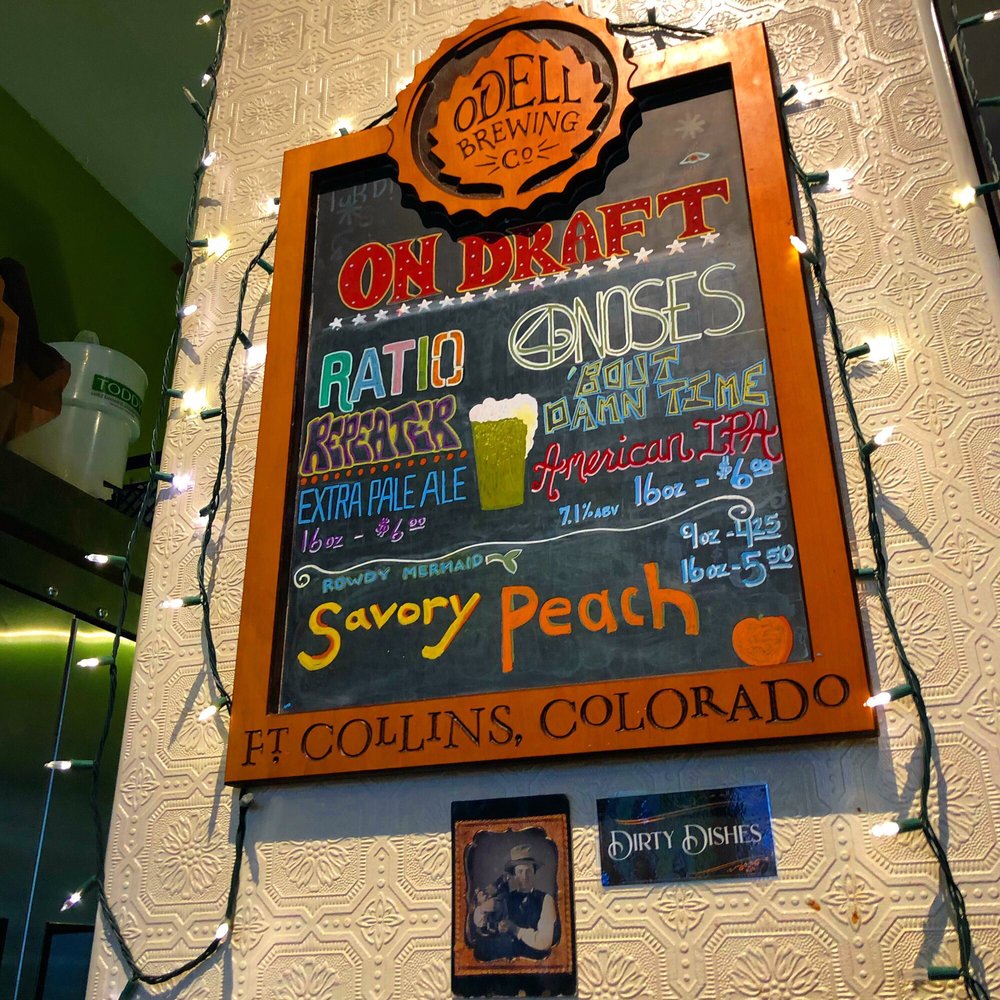 ODELL
BREWING
Co
ON DRAFT
RATIO
REPEATER
EXTRA PALE ALE
16oz - $6.00
4NOSES
'BOUT
DAMN TIME
American IPA
7.1% ABV 16oz - $6.00
ROWDY MERMAID
9oz - 4.25
16oz - 5.50
Savory Peach
FT. COLLINS, COLORADO
DIRTY DISHES
TODDY